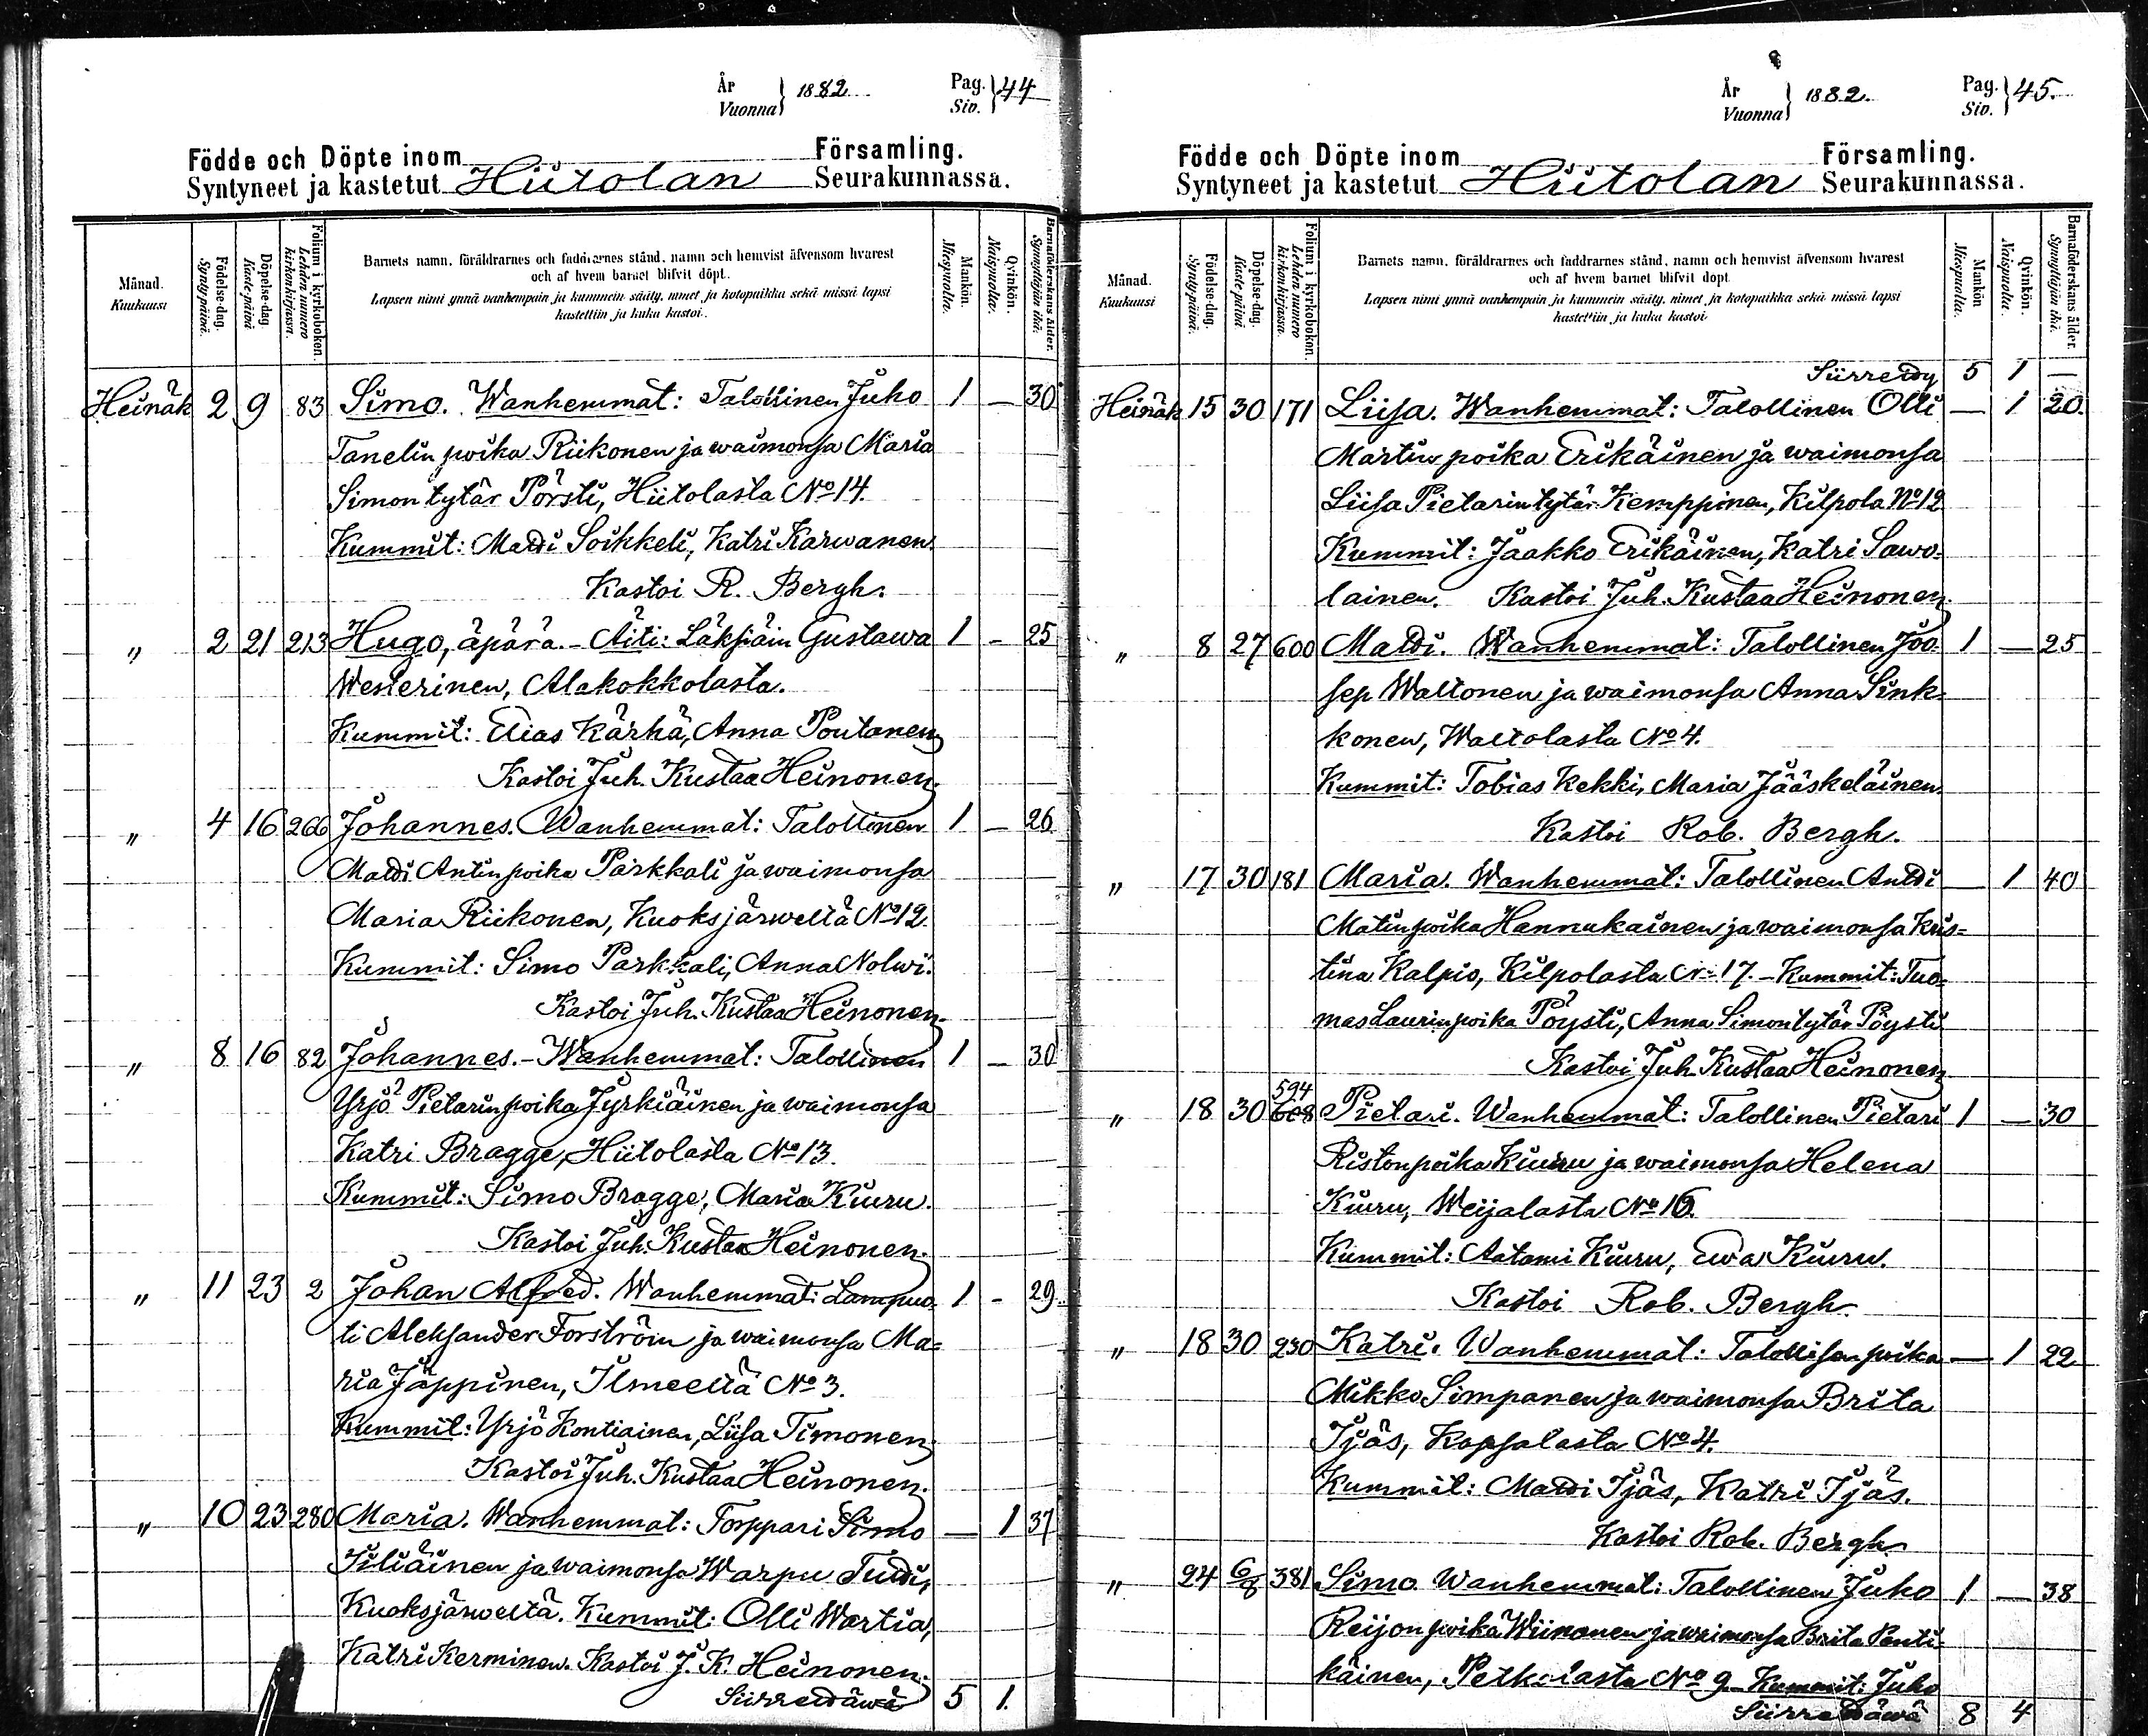 År
Vuonna } 1882
Pag.
Siv. } 44
Födde och Döpte inom Församling.
Syntyneet ja kastetut Hiitolan Seurakunnassa.
Månad.
Kuukausi
Födelse-dag.
Synty-päivä.
Döpelse-dag.
Kaste-päivä
Folium i kyrkoboken.
Lehden numero
kirkonkirjassa.
Barnets namn, föräldrarnes och faddrarnes stånd, namn och hemvist äfvensom hvarest
och af hvem barnet blifvit döpt.
Lapsen nimi ynnä vanhempain ja kummein sääty, nimet ja kotopaikka sekä missä lapsi
kastettiin ja kuka kastoi.
Mankön.
Miespuolia.
Qvinkön.
Naispuolia.
Barnaföderskans ålder.
Synnyttäjän ikä.
Heinäk 2 9 83 Simo. Wanhemmat: Talollinen Juho 1 — 30
Tanelin poika Riikonen ja waimonsa Maria
Simon tytär Pörsti, Hiitolasta No 14.
Kummit: Matti Soikkeli, Katri Karwanen.
Kastoi R. Bergh.
" 2 21 213 Hugo, äpärä. - Äiti: Läksiäin Gustawa 1 - 25
Westerinen, Alakokkolasta.
Kummit: Elias Kärhä, Anna Poutanen
Kastoi Juh. Kustaa Heinonen.
" 4 16 266 Johannes. Wanhemmat: Talollinen 1 — 26
Matti Antin poika Parkkali ja waimonsa
Maria Riikonen, Kuoksjärweltä No 12.
Kummit: Simo Parkkali, Anna Nolwi.
Kastoi Juh. Kustaa Heinonen.
" 8 16 82 Johannes. - Wanhemmat: Talollinen 1 — 30
Yrjö Pietarin poika Jyrkiäinen ja waimonsa
Katri Bragge, Hiitolasta No 13.
Kummit: Simo Bragge, Maria Kiuru.
Kastoi Juh. Kustaa Heinonen.
" 11 23 2 Johan Alfred. Wanhemmat: Lampuo- 1 - 29
ti Aleksander Forström ja waimonsa Ma=
ria Jäppinen, Ilmeeltä No 3.
Kummit: Yrjö Kontiainen, Liisa Timonen
Kastoi Juh. Kustaa Heinonen.
" 10 23 280 Maria. Wanhemmat: Torppari Simo — 1 37
Iiliäinen ja waimonsa Warpu Tuuti,
Kuoksjärweltä. Kummit: Olli Wartia,
Katri Kerminen. Kastoi J. K. Heinonen.
Siirrettäwä 5 1.
År
Vuonna } 1882.
Pag.
Siv. } 45.
Födde och Döpte inom Församling.
Syntyneet ja kastetut Hiitolan Seurakunnassa.
Månad.
Kuukausi
Födelse-dag.
Synty-päivä.
Döpelse-dag.
Kaste-päivä
Folium i kyrkoboken.
Lehden numero
kirkonkirjassa.
Barnets namn, föräldrarnes och faddrarnes stånd, namn och hemvist äfvensom hvarest
och af hvem barnet blifvit döpt
Lapsen nimi ynnä vanhempain ja kummein sääty, nimet ja kotopaikka sekä missä lapsi
kastettiin ja kuka kastoi
Mankön
Miespuolia.
Qvinkön.
Naispuolia.
Barnaföderskans ålder.
Synnyttäjän ikä.
Siirretty 5 1 —
Heinäk 15 30 171 Liisa. Wanhemmat: Talollinen Olli — 1 20.
Martin poika Erikäinen ja waimonsa
Liisa Pietarin tytär Kemppinen, Kilpola No 12
Kummit: Jaakko Erikäinen, Katri Sawo-
lainen. Kastoi Juh. Kustaa Heinonen.
" 8 27 600 Matti. Wanhemmat: Talollinen Joo- 1 — 25
sep Waltonen ja waimonsa Anna Sink-
konen, Waltolasta No 4.
Kummit: Tobias Kekki, Maria Jääskeläinen
Kastoi Rob. Bergh.
" 17 30 181 Maria. Wanhemmat: Talollinen Antti — 1 40
Matin poika Hannukainen ja waimonsa Kris=
tina Kalpio, Kilpolasta No 17. - Kummit: Tuo-
mas Laurin poika Pöysti, Anna Simon tytär Pöysti
Kastoi Juh. Kustaa Heinonen
594
" 18 30 608 Pietari. Wanhemmat: Talollinen Pietari 1 — 30
Riston poika Kiuru ja waimonsa Helena
Kiuru, Weijalasta No 16.
Kummit: Aatami Kiuru, Ewa Kiuru.
Kastoi Rob. Bergh.
" 18 30 230 Katri. Wanhemmat: Talollisen poika — 1 22
Mikko Simpanen ja waimonsa Brita
Ijäs, Kopsalasta No 4.
Kummit: Matti Ijäs, Katri Ijäs.
Kastoi Rob. Bergh
" 24 6/8 381 Simo. Wanhemmat: Talollinen Juho 1 — 38
Reijon poika Wiinonen ja waimonsa Brita Penti-
käinen, Petkolasta No 9. Kummit: Juho
Siirrettäwä 8 4